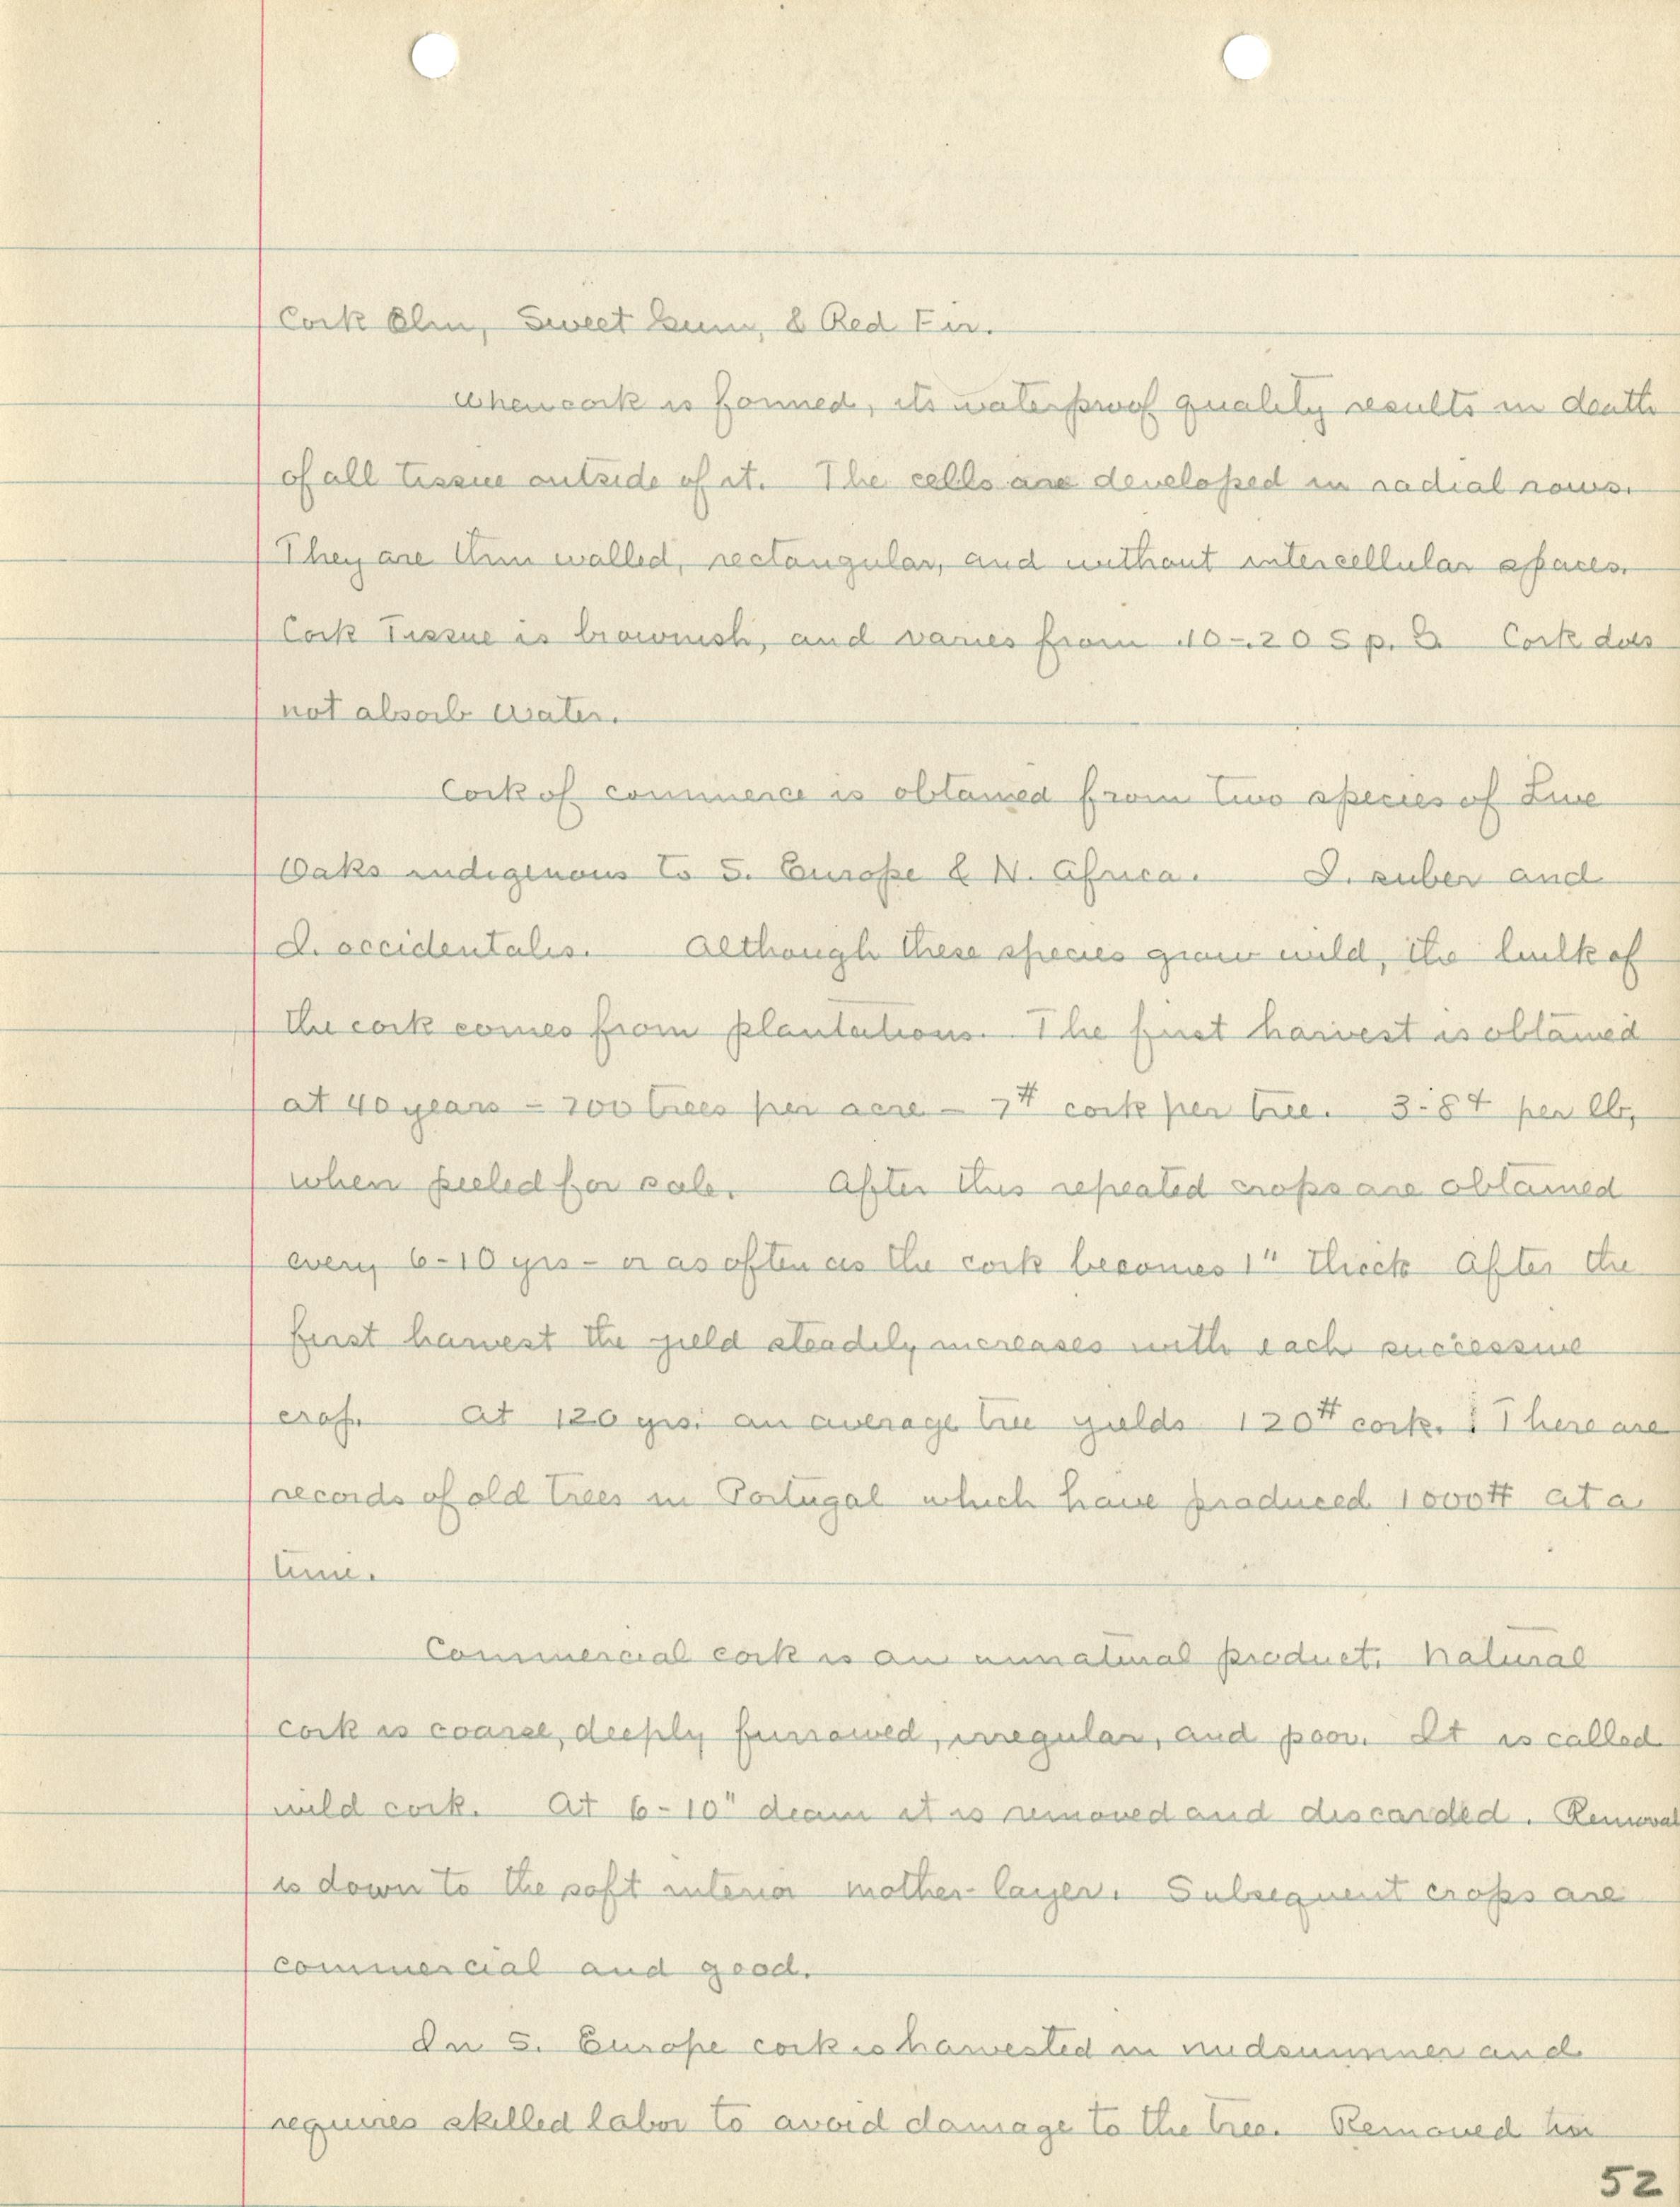 Cork Elm, Sweet Gum, & Red Fir.
When cork is formed, its waterproof quality results in death
of all tissue outside of it. The cells are developed in radial rows.
They are thin walled, rectangular, and without intercellular spaces.
Cork Tissue is brownish, and varies from .10-.20 Sp. G. Cork does
not absorb water.
Cork of commerce is obtained from two species of Live
Oaks indigenous to S. Europe & N. Africa. Q. suber and
Q. occidentalis. Although these species grow wild, the bulk of
the cork comes from plantations. The first harvest is obtained
at 40 years - 200 trees per acre - 7# cork per tree. 3-8¢ per lb,
when peeled for sale. After this repeated crops are obtained
every 6-10 yrs - or as often as the cork becomes 1" thick After the
first harvest the yield steadily increases with each successive
crop. At 120 yrs. an average tree yields 120# cork. There are
records of old trees in Portugal which have produced 1000# at a
time.
Commercial cork is an unnatural product. Natural
cork is coarse, deeply furrowed, irregular, and poor. It is called
wild cork. At 6-10" diam it is removed and discarded. Removal
is down to the soft interior mother-layer. Subsequent crops are
commercial and good.
In S. Europe cork is harvested in midsummer and
requires skilled labor to avoid damage to the tree. Removed
52